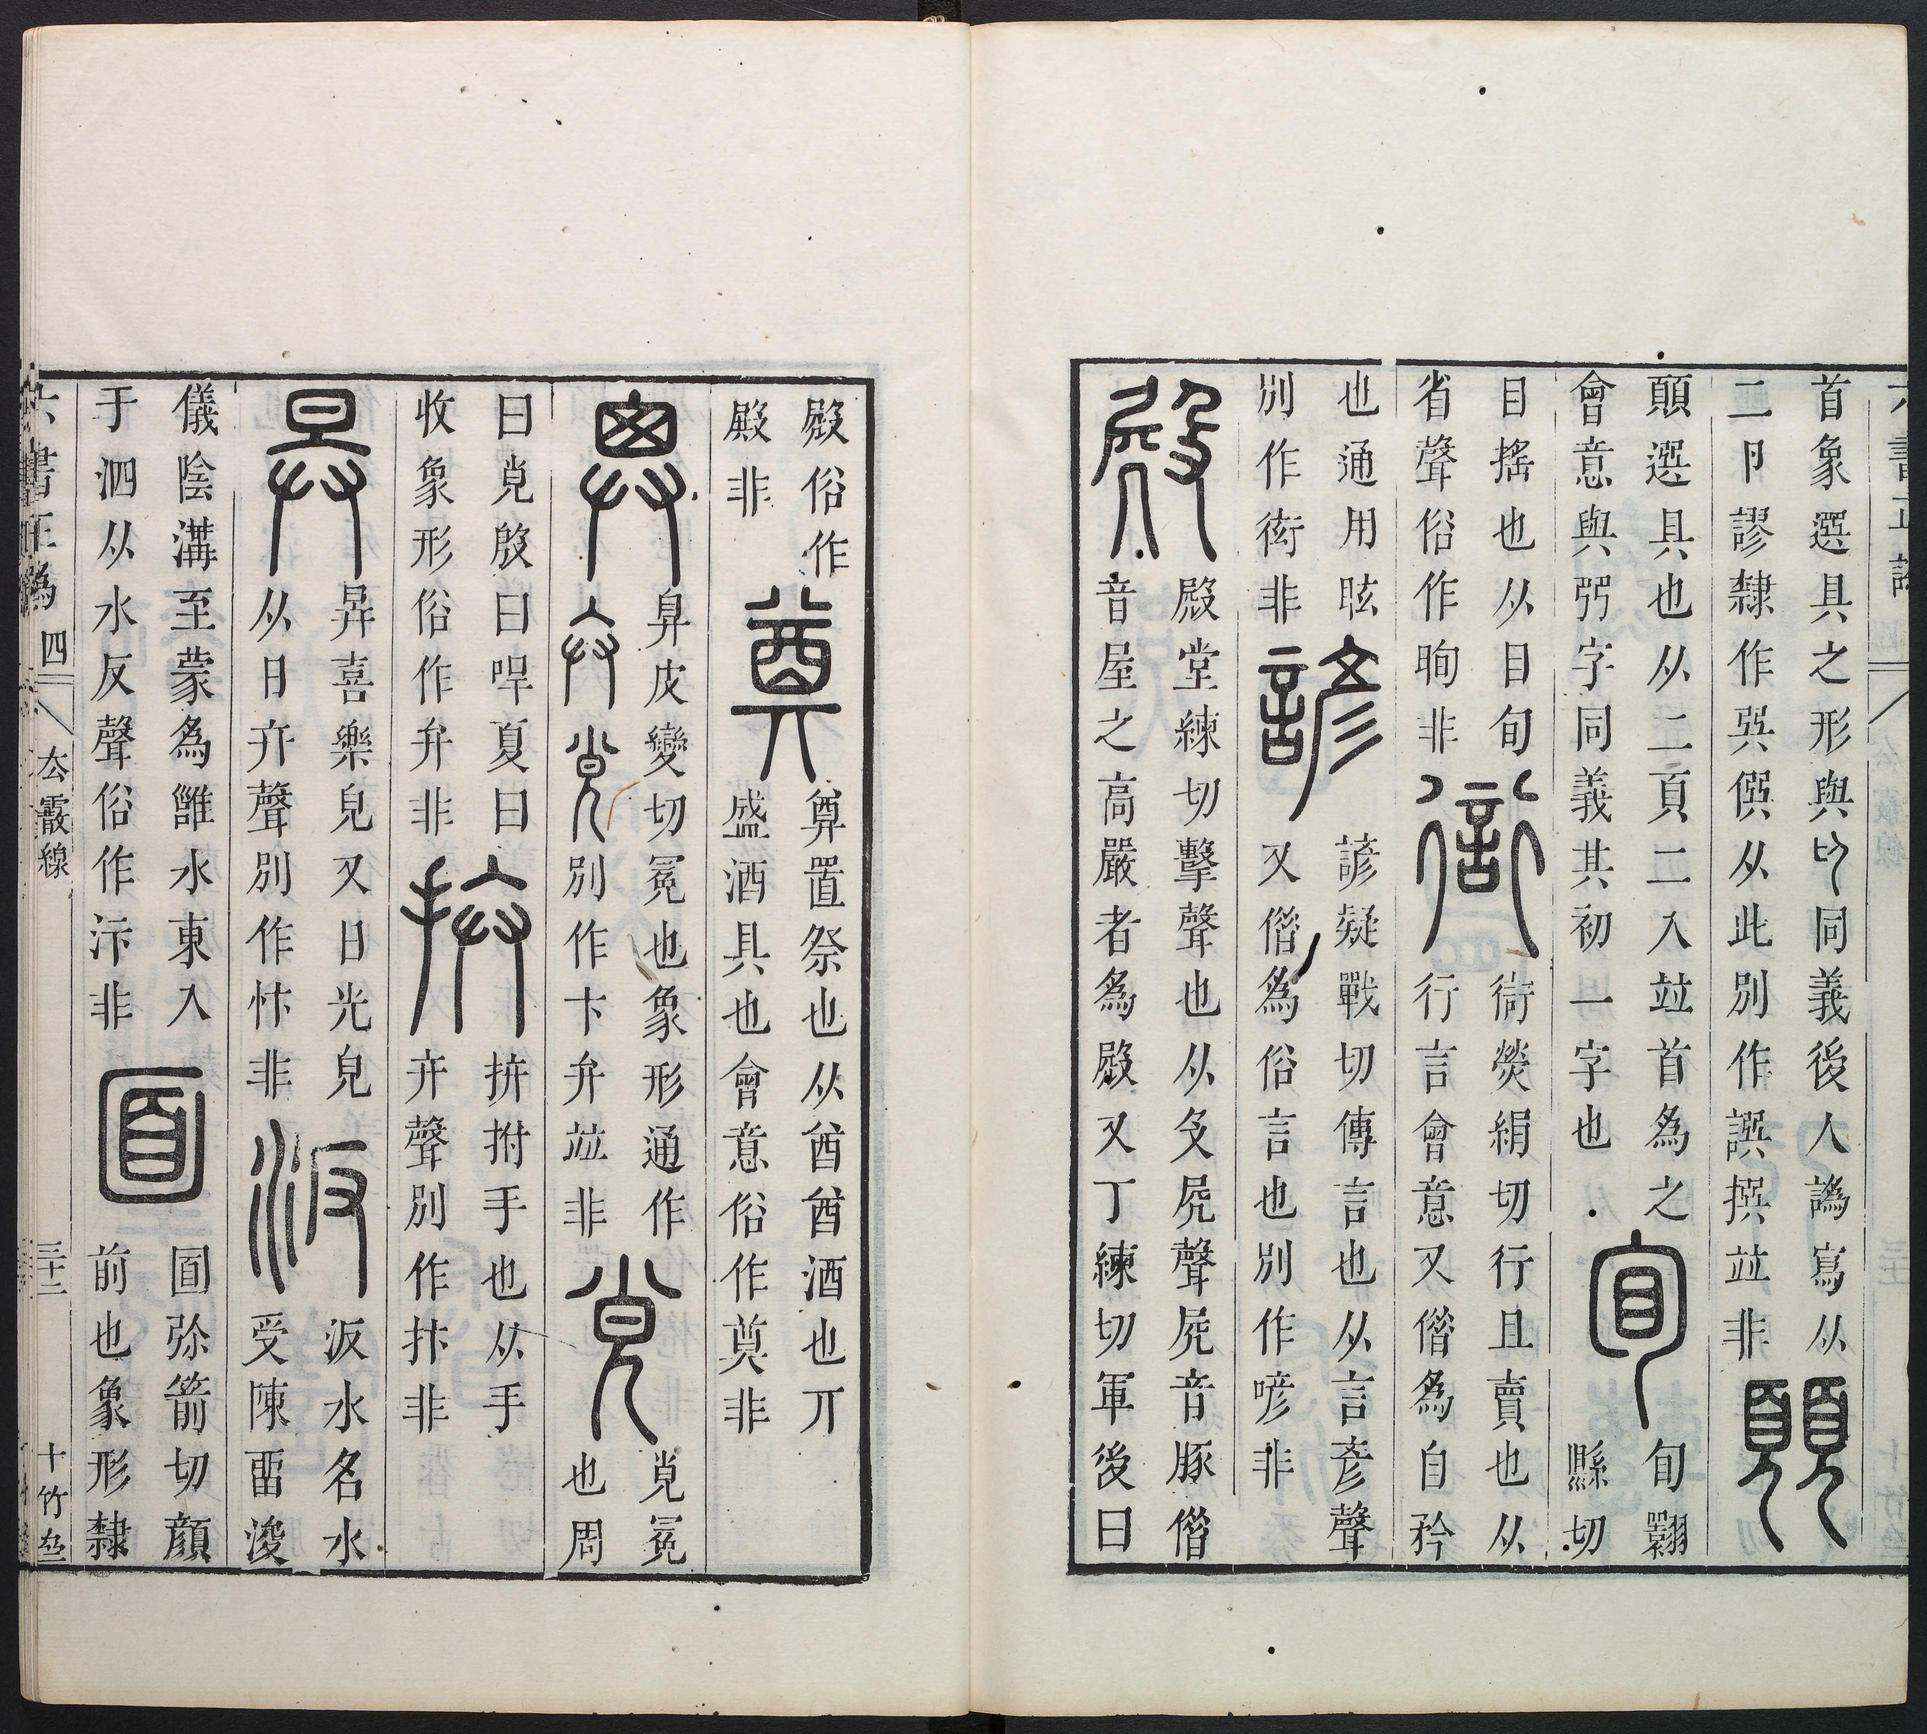 六書正譌
首象選具之形與同義後人譌寫从
二卩謬隸作巽僎从此別作譔撰竝非
顛選具也从二頁二入竝首為之
會意與弜字同義其初一字也
旬翾
縣切
目搖也从目旬
省聲俗作眴非
衒
衒熒絹切行且賣也从
行言會意又僭為自矜
也通用眩
別作衒非
諺
諺疑戰切傳言也从言彥聲
又僭為俗言也別作喭非
殿
殿堂練切擊聲也从殳𡱂聲𡱂音豚僭
音屋之高嚴者為殿又丁練切軍後曰
殿俗作
殿非
奠
奠置祭也从酋酋酒也丌
盛酒具也會意俗作奠非
𢍍
皮變切冕也象形通作
別作卞弁竝非
覍
覍冕
也周
曰覍殷曰哻夏曰
收象形俗作弁非
拚
拚拊手也从手
弁聲別作抃非
昪
昪喜樂皃又日光皃
从日弁聲別作忭非
汳
汳水名水
受陳畱浚
儀陰溝至蒙為雝水東入
于泗从水反聲俗作汴非
圎弥箭切顔
前也象形隸
六書正譌 四 厺霰線 三十二 十竹𠫤